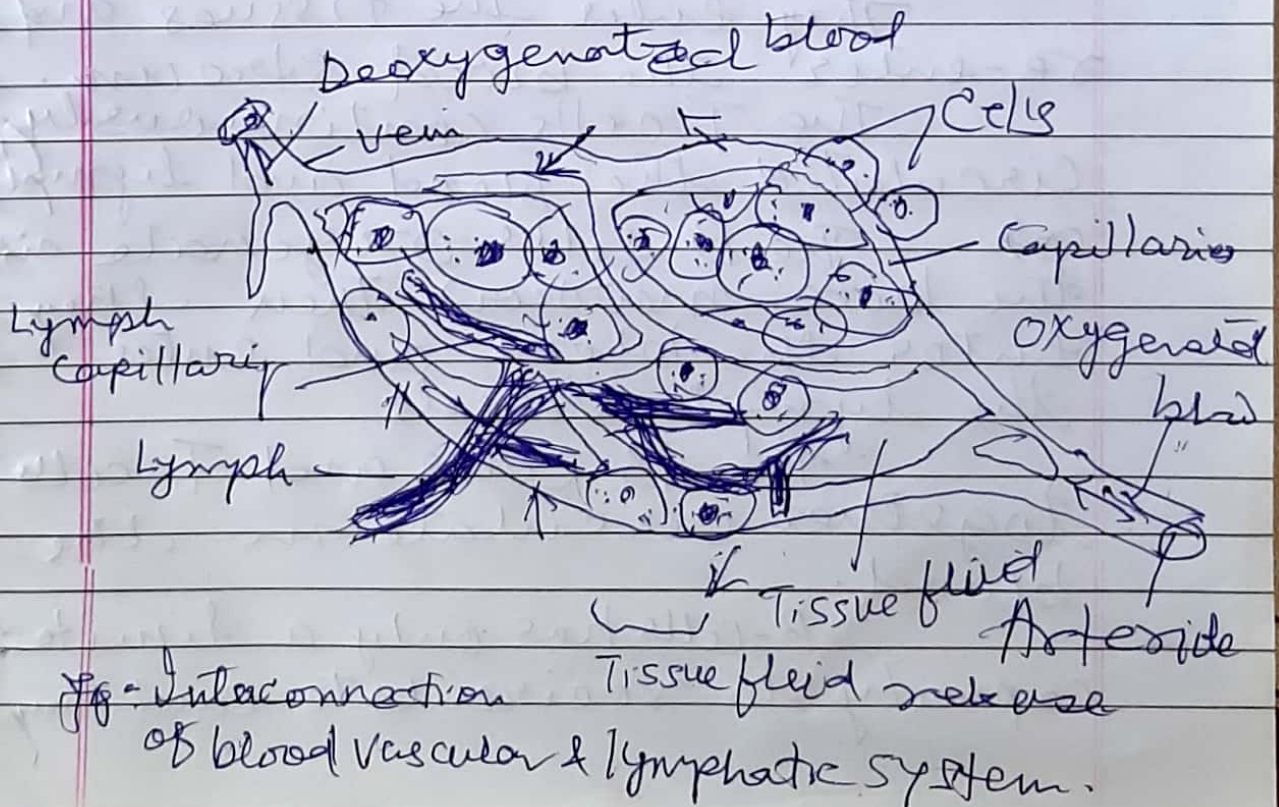 Deoxygenated blood
Vein
Cells
Capillaries
Lymph
Capillary
oxygenated
blood
Lymph
Tissue fluid
Arteriole
Tissue fluid release
Fig:- Interconnection
of blood vascular & lymphatic system.